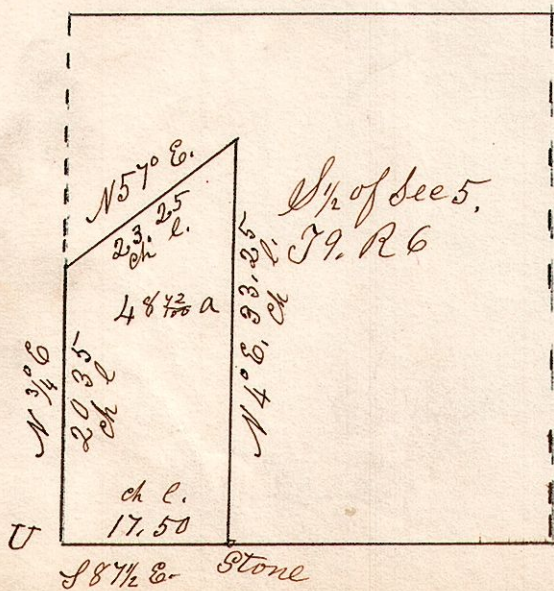 N57° E.
23.25
ch l.
S½ of Sec 5.
T9. R6
48 72/100 a
N ¾° E
20 35
ch l
N 4° E. 33.25
ch l.
ch l.
17.50
U
S 87½ E- Stone